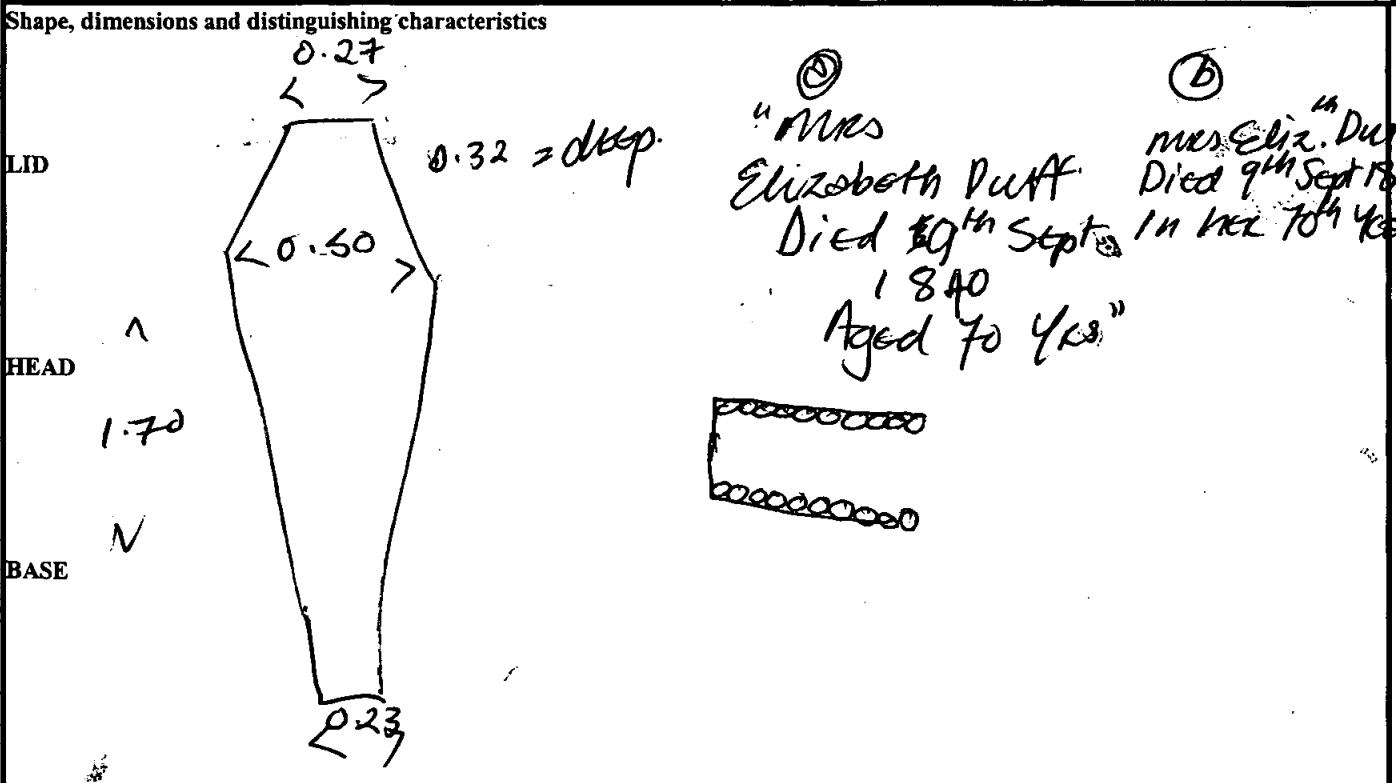 Shape, dimensions and distinguishing characteristics
0.27
LID
0.32 = deep.
0.50
HEAD
1.70
BASE
0.23
a
"Mrs
Elizabeth Duff
Died 9th Sept
1840
Aged 70 Yrs"
b
Mrs Eliz.th Du
Died 9th Sept 18
In her 70th